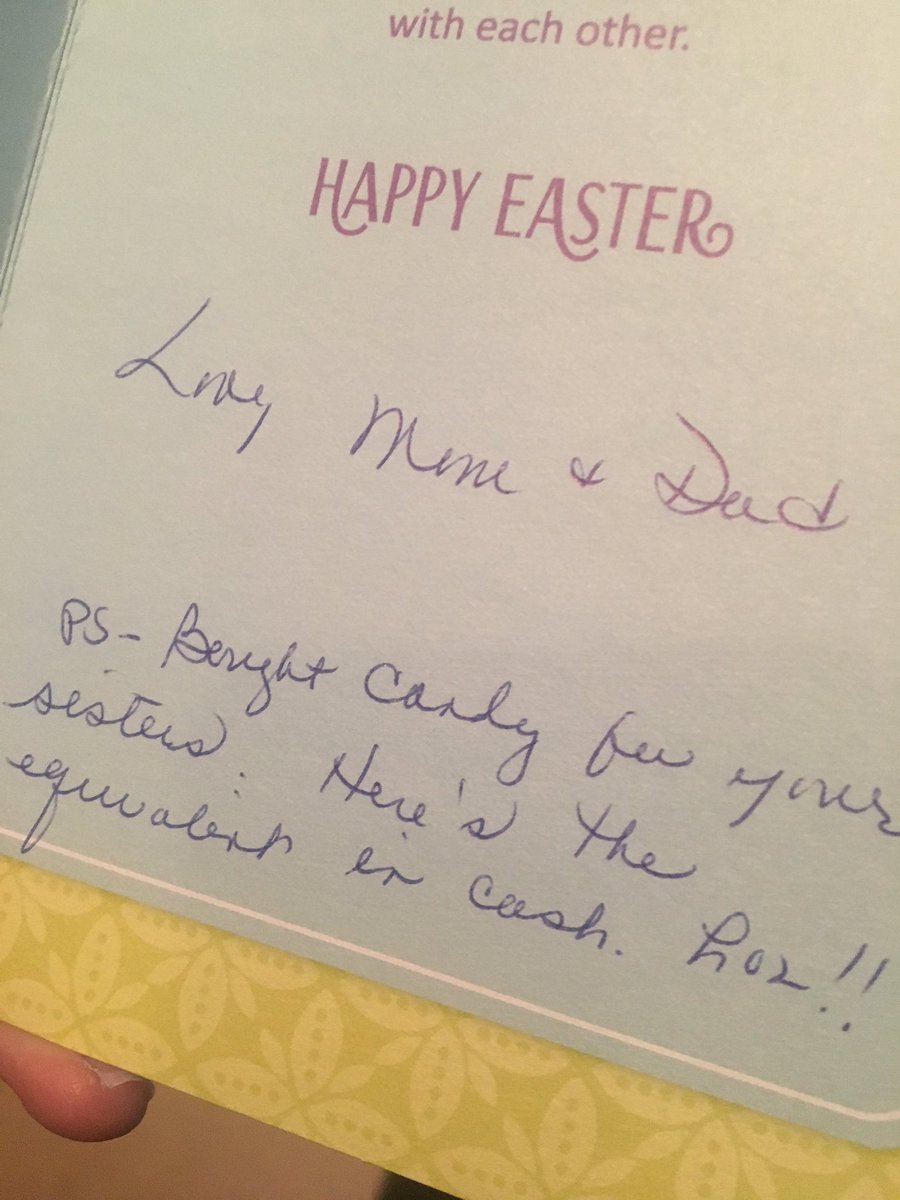 with each other.
HAPPY EASTER
Love Mom & Dad
PS- Bought Candy for your
sisters. Here's the
equivalent in cash. LOL!!